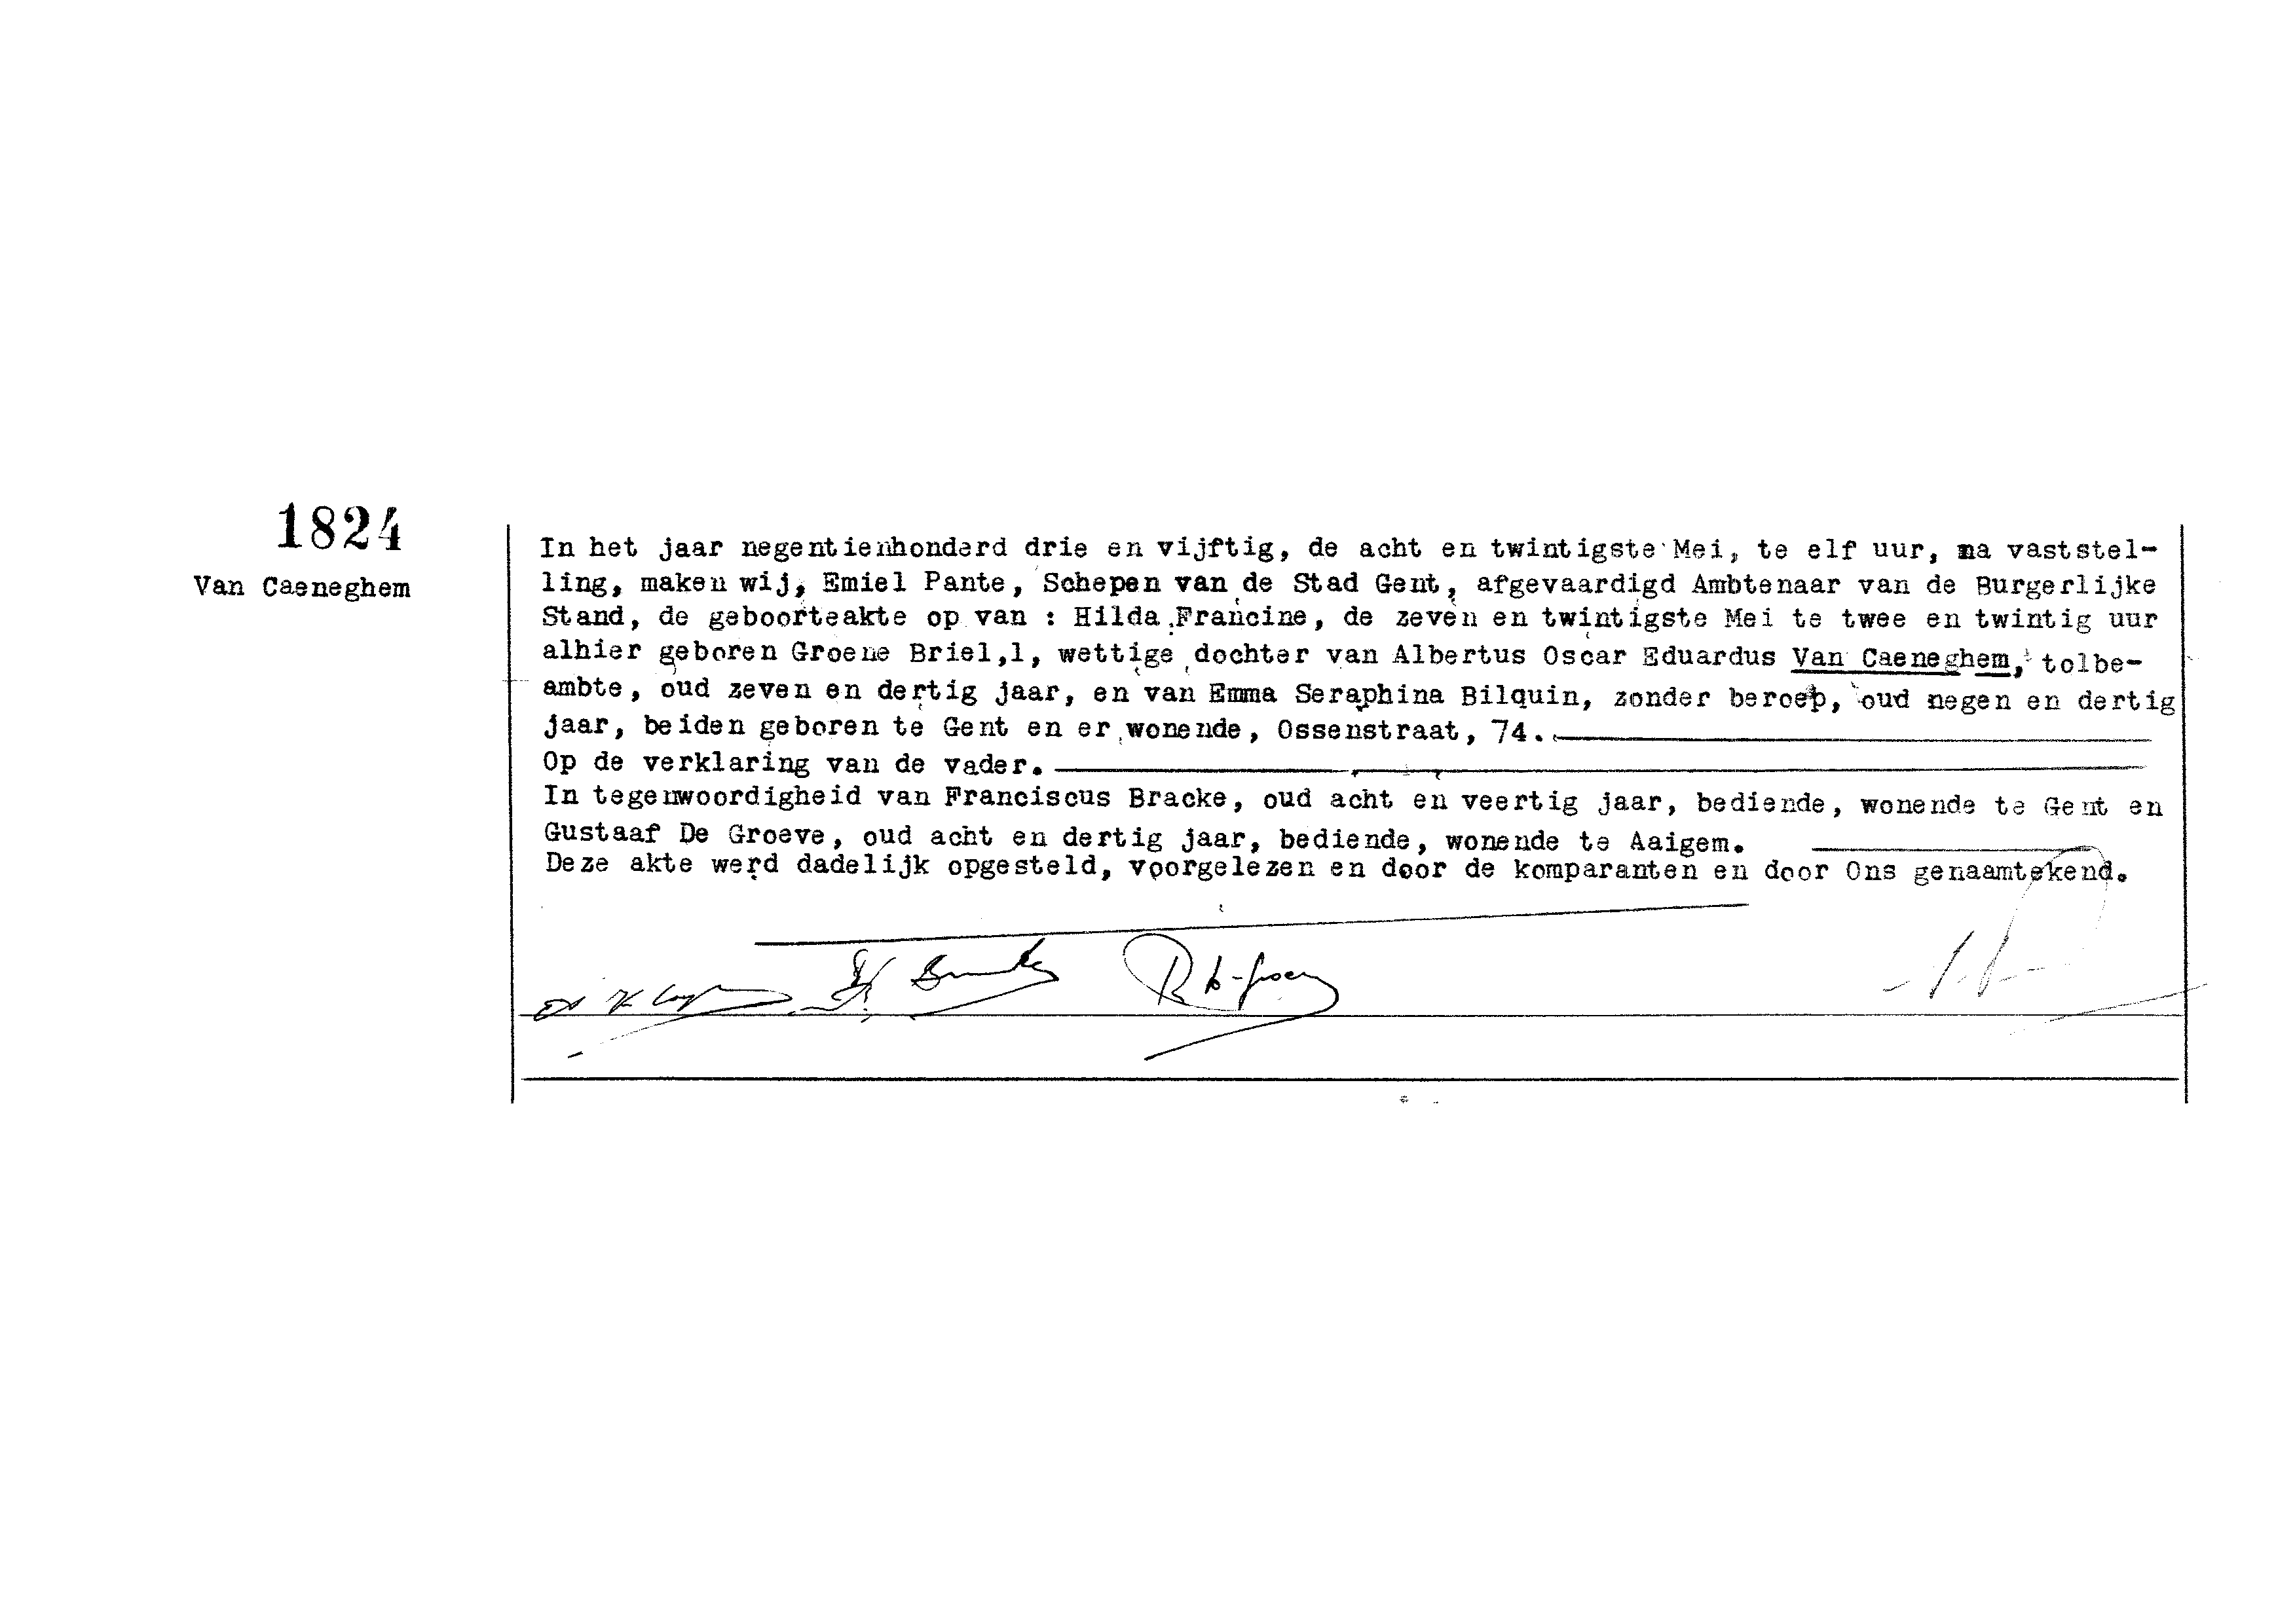 1824
Van Caeneghem
In het jaar negentienhonderd drie en vijftig, de acht en twintigste Mei, te elf uur, na vaststel-
ling, maken wij, Emiel Pante, Schepen van de Stad Gent, afgevaardigd Ambtenaar van de Burgerlijke
Stand, de geboorteakte op van : Hilda Francine, de zeven en twintigste Mei te twee en twintig uur
alhier geboren Groene Briel,1, wettige dochter van Albertus Oscar Eduardus Van Caeneghem, tolbe-
ambte, oud zeven en dertig jaar, en van Emma Seraphina Bilquin, zonder beroep, oud negen en dertig
jaar, beiden geboren te Gent en er wonende, Ossenstraat, 74.
Op de verklaring van de vader.
In tegenwoordigheid van Franciscus Bracke, oud acht en veertig jaar, bediende, wonende te Gent en
Gustaaf De Groeve, oud acht en dertig jaar, bediende, wonende te Aaigem.
Deze akte werd dadelijk opgesteld, voorgelezen en door de komparanten en door Ons genaamtekend.